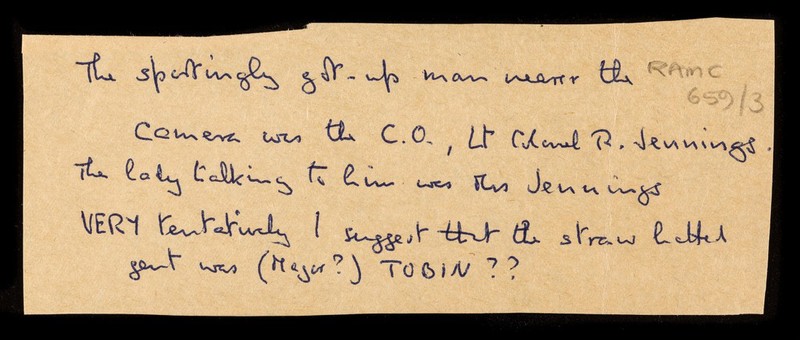 The sportingly got-up man nearer the
RAMC
659/3
Camera was the C.O., Lt Colonel R. Jennings.
The lady talking to him was Mrs Jennings
VERY tentatively I suggest that the straw hatted
gent was (Major?) TOBIN ??